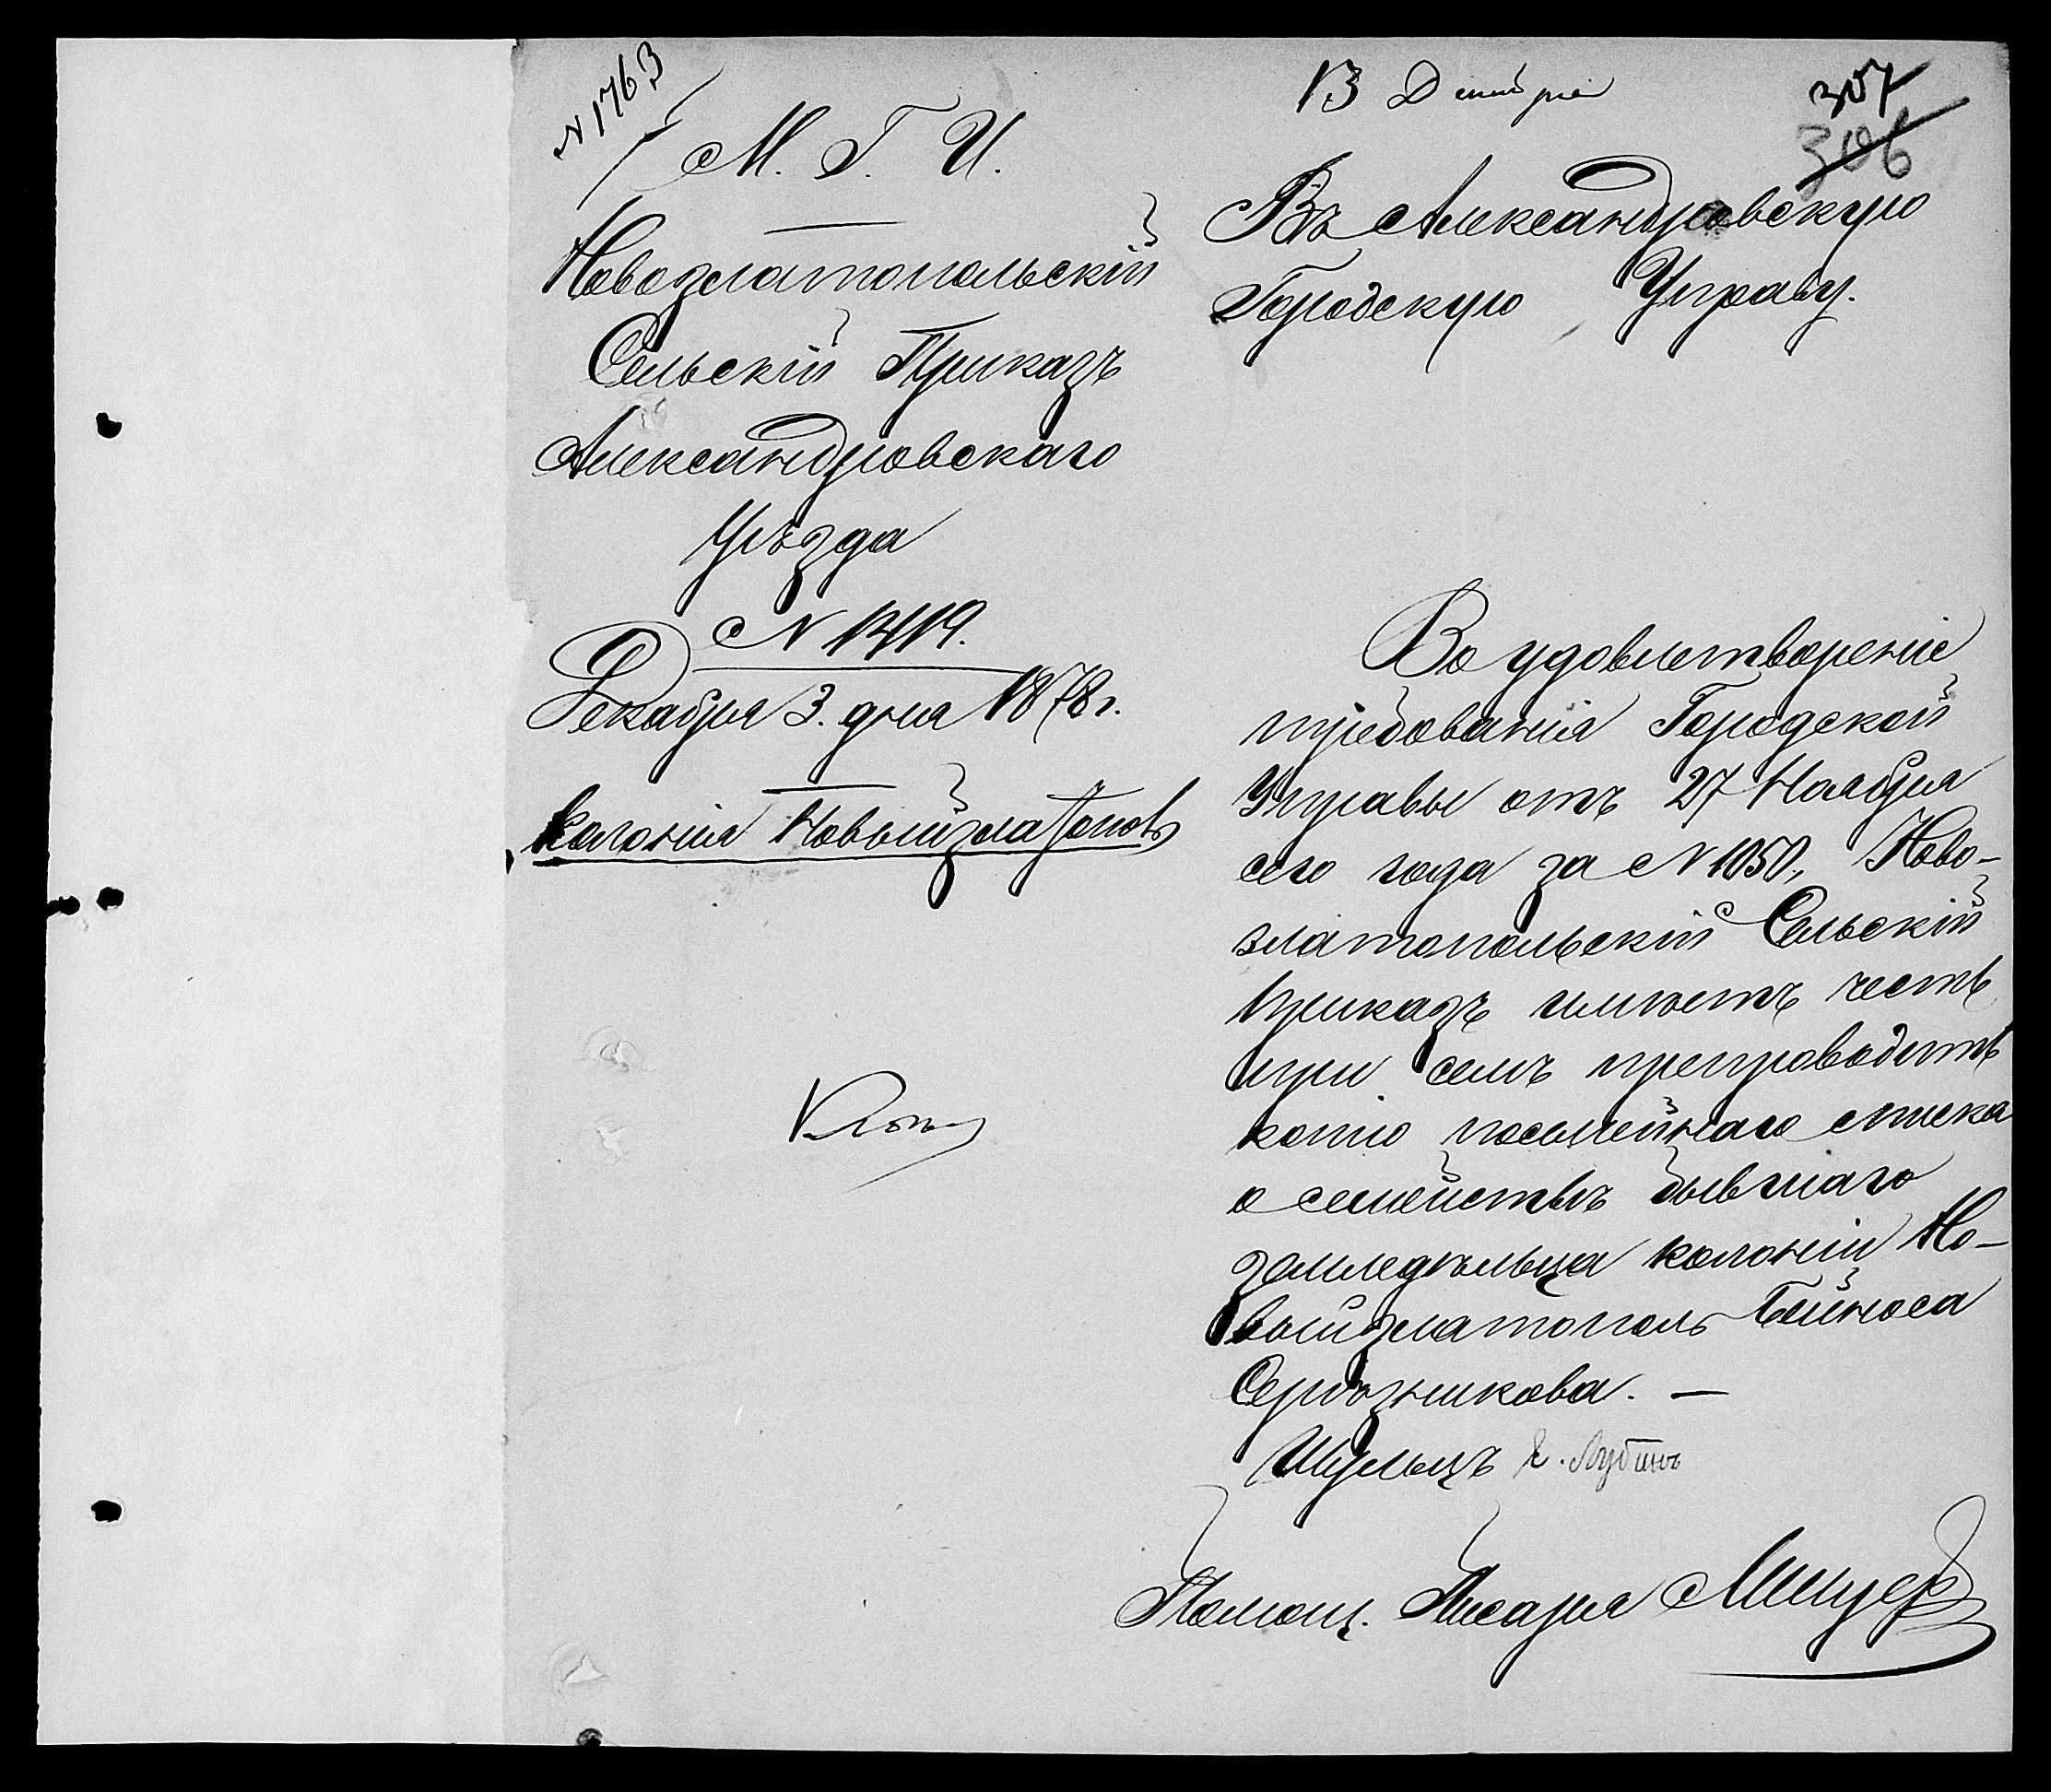 N 1763
М. Г. И.
Новозлатопольскій
Сельскій Приказъ
Александровскаго
Уѣзда
N 1419.
Декабря 3. дня 1878 г.
Колонія Новыйзлатополь
13 Декабря
307
306
Въ Александровскую
Городскую Управу.
Во удовлетвореніе
требованія Городской
Управы отъ 27 Ноября
сего года за N 1050, Ново-
златопольскій Сельскій
Приказъ имѣетъ честь
при семъ препроводить
копію посемейнаго списка
о семействѣ бывшаго
земледѣльца колоніи Но-
выйзлатополь Бейноса
Серебзникова. —
Шульцъ
Помощ. Писаря Минцер